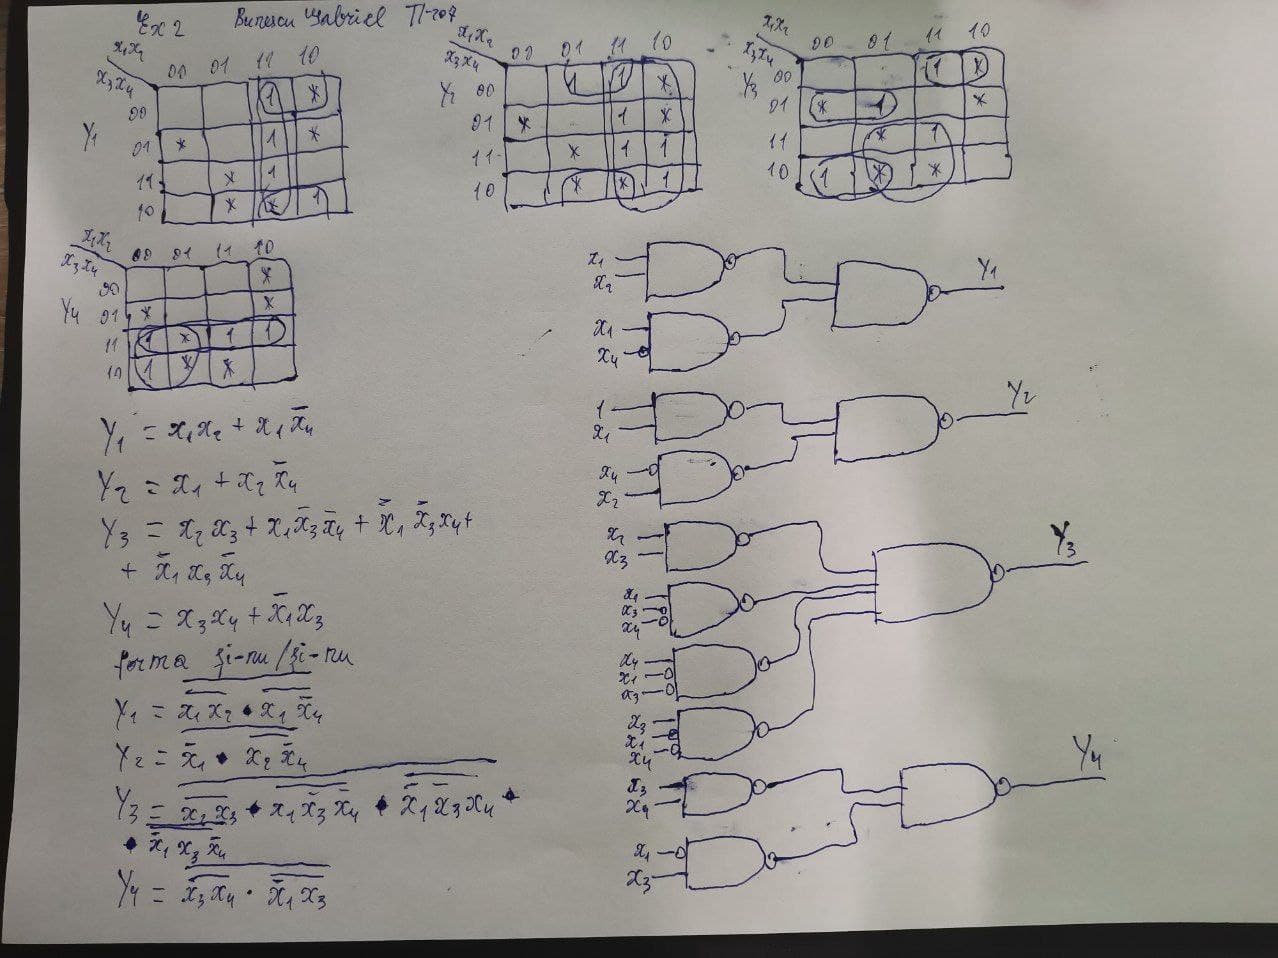 Ex 2 Gabriel TI-207
x₁x₂
x₃x₄
Y₁
00 01 11 10
00 1 *
01 * 1 *
11 * 1
10 * * 1
x₁x₂
x₃x₄
Y₂
00 01 11 10
00 1 1 *
01 * 1 *
11 * 1 1
10 * * 1
x₁x₂
x₃x₄
Y₃
00 01 11 10
00 1 *
01 * 1 *
11 * 1
10 1 * *
x₁x₂
x₃x₄
Y₄
00 01 11 10
00 *
01 * *
11 1 * 1 1
10 1 * *
Y₁ = x₁x₂ + x₁x̄₄
Y₂ = x₁ + x₂x̄₄
Y₃ = x₂x₃ + x₁x̄₃x̄₄ + x̄₁x̄₃x₄ +
+ x̄₁x₃x̄₄
Y₄ = x₃x₄ + x̄₁x₃
forma și-nu/și-nu
Y₁ = \overline{\overline{x₁x₂} • \overline{x₁x̄₄}}
Y₂ = \overline{x̄₁ • \overline{x₂x̄₄}}
Y₃ = \overline{\overline{x₂x₃} • \overline{x₁x̄₃x̄₄} • \overline{x̄₁x̄₃x₄} •
• \overline{x̄₁x₃x̄₄}}
Y₄ = \overline{\overline{x₃x₄} • \overline{x̄₁x₃}}
x₁
x₂
x₁
x₄
Y₁
1
x₁
x₄
x₂
Y₂
x₂
x₃
x₁
x₃
x₄
x₄
x₁
x₃
x₃
x₁
x₄
Y₃
x₃
x₄
x₁
x₃
Y₄